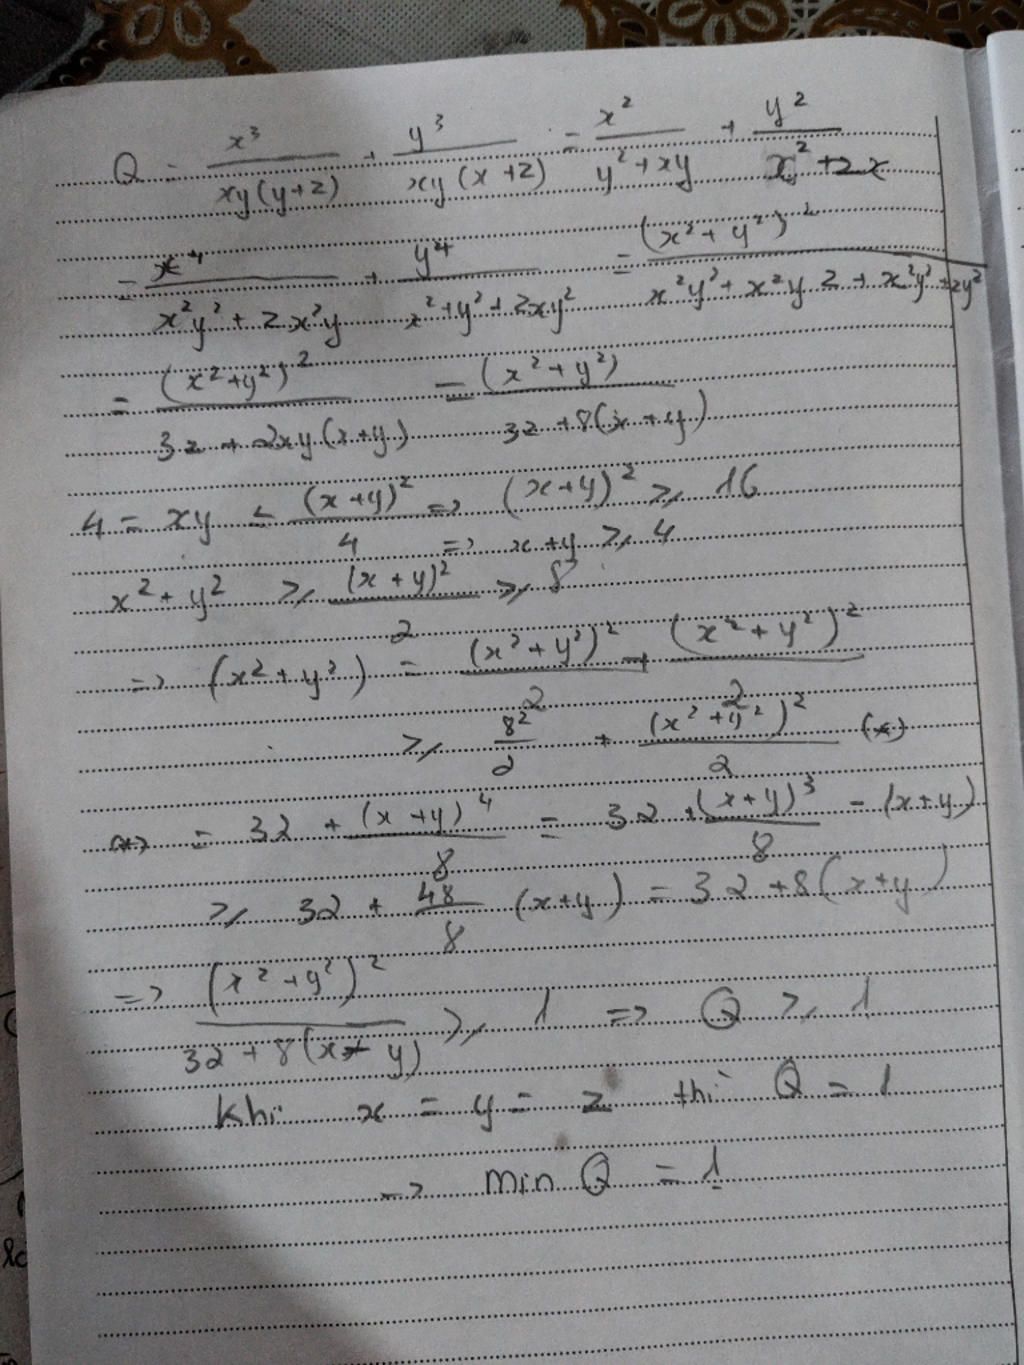 Q = x³/(xy(y+2)) + y³/(xy(x+2)) = x²/(y²+xy) + y²/(x²+2x)
= x⁴/(x²y²+2x²y) + y⁴/(x²+y²+2xy²) = (x²+y²)²/(x²y²+x²y2+x²y²+2y²)
= (x²+y²)²/(32+2xy(x+y)) = (x²+y²)/(32+8(x+y))
4 = xy ≤ (x+y)²/4 => (x+y)² ≥ 16
=> x+y ≥ 4
x²+y² ≥ (x+y)²/2 ≥ 8
=> (x²+y²) = (x²+y²)²/2 + (x²+y²)²/2
≥ 8²/2 + (x²+y²)²/2 (*)
(*) = 32 + (x+y)⁴/8 = 32 + (x+y)³/8 - (x+y)
≥ 32 + 48/8 (x+y) = 32+8(x+y)
=> (x²+y²)²/(32+8(x+y)) ≥ 1 => Q ≥ 1
Khi x = y = 2 thì Q = 1
-> min Q = 1